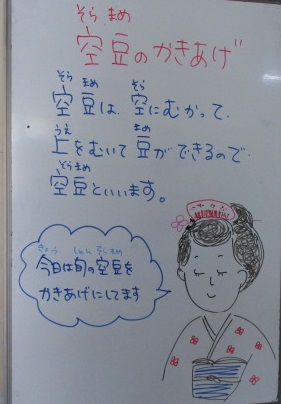 そら まめ
空豆のかきあげ
そら まめ そら
空豆は、空にむかって、
うえ まめ
上をむいて豆ができるので、
そらまめ
空豆といいます。
きょう しゅん そらまめ
今日は旬の空豆を
かきあげにしてます